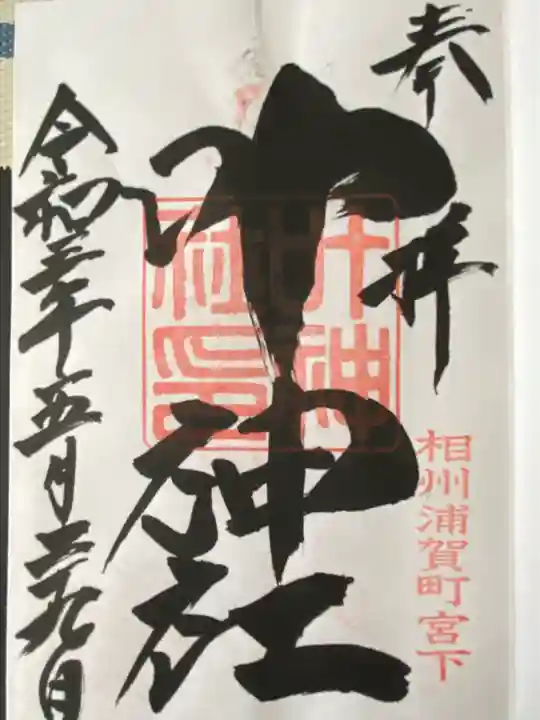 奉拝
相州浦賀町宮下
叶神社
叶神社印
令和元年五月二十九日